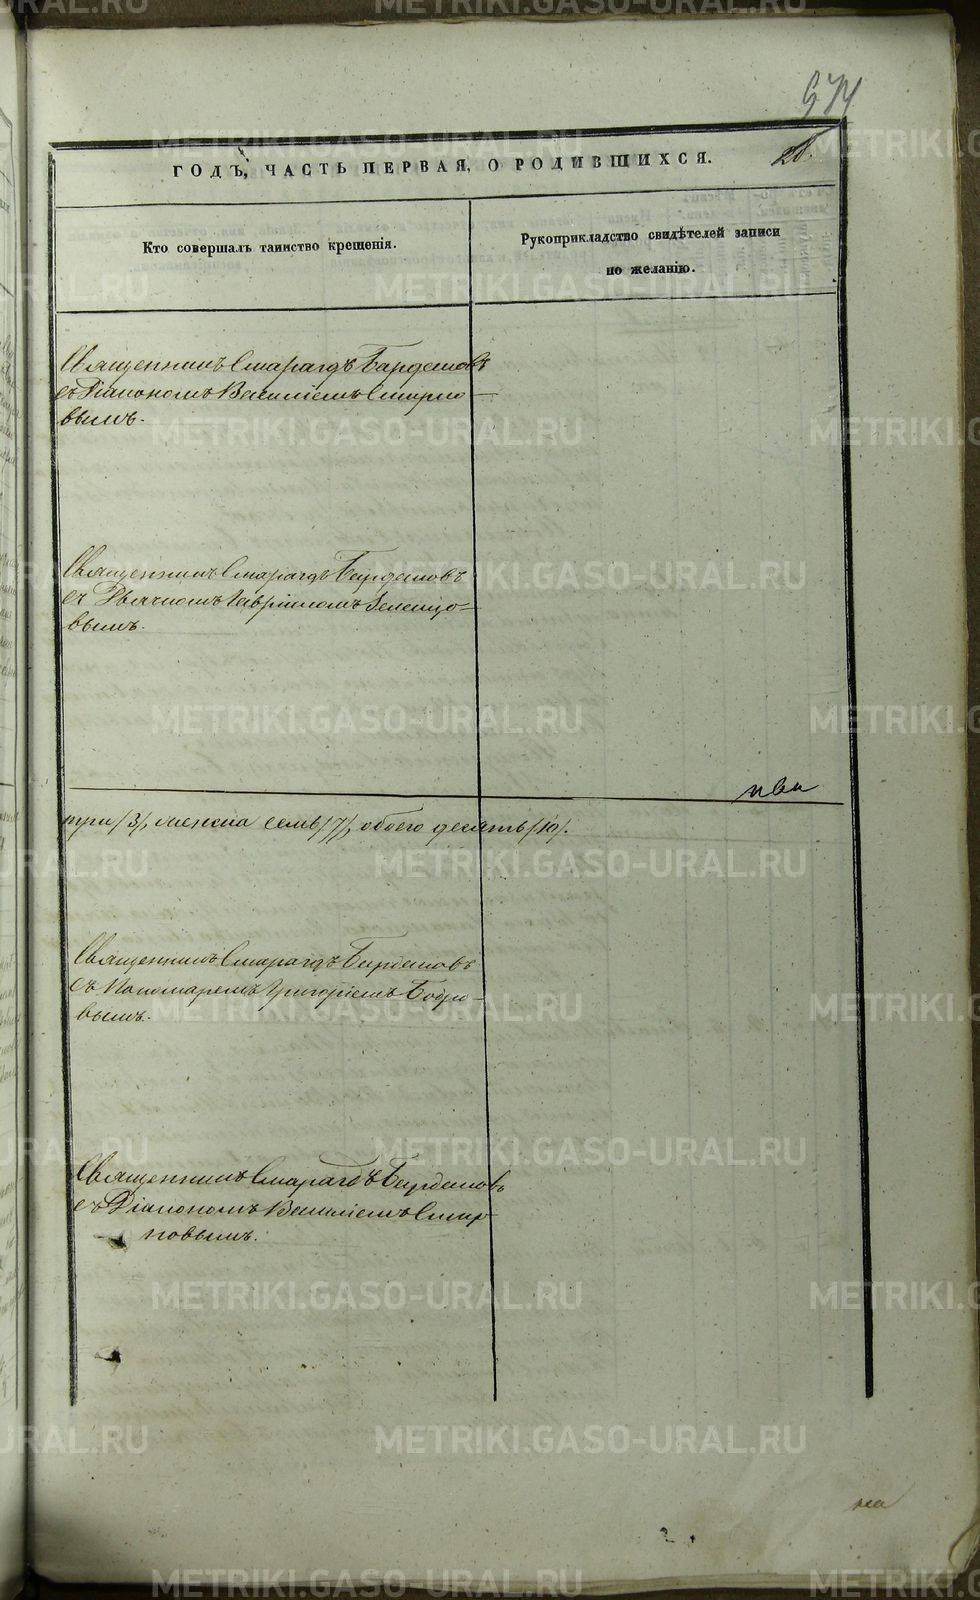 974
ГОДЪ, ЧАСТЬ ПЕРВАЯ, О РОДИВШИХСЯ.
20.
Кто совершалъ таинство крещенія.
Рукоприкладство свидѣтелей записи
по желанію.
Священникъ Смарагдъ Бирдемовъ
съ Діакономъ Василіемъ Смирно-
вымъ.
Священникъ Смарагдъ Бирдемовъ
съ Дьячкомъ Гавріиломъ Зеленцо-
вымъ.
три /3/, женска семь /7/, обоего десять /10/.
Священникъ Смарагдъ Бирдемовъ
съ Пономаремъ Григоріемъ Бобро-
вымъ.
Священникъ Смарагдъ Бирдемовъ
съ Діакономъ Василіемъ Смир-
новымъ.
METRIKI.GASO-URAL.RU